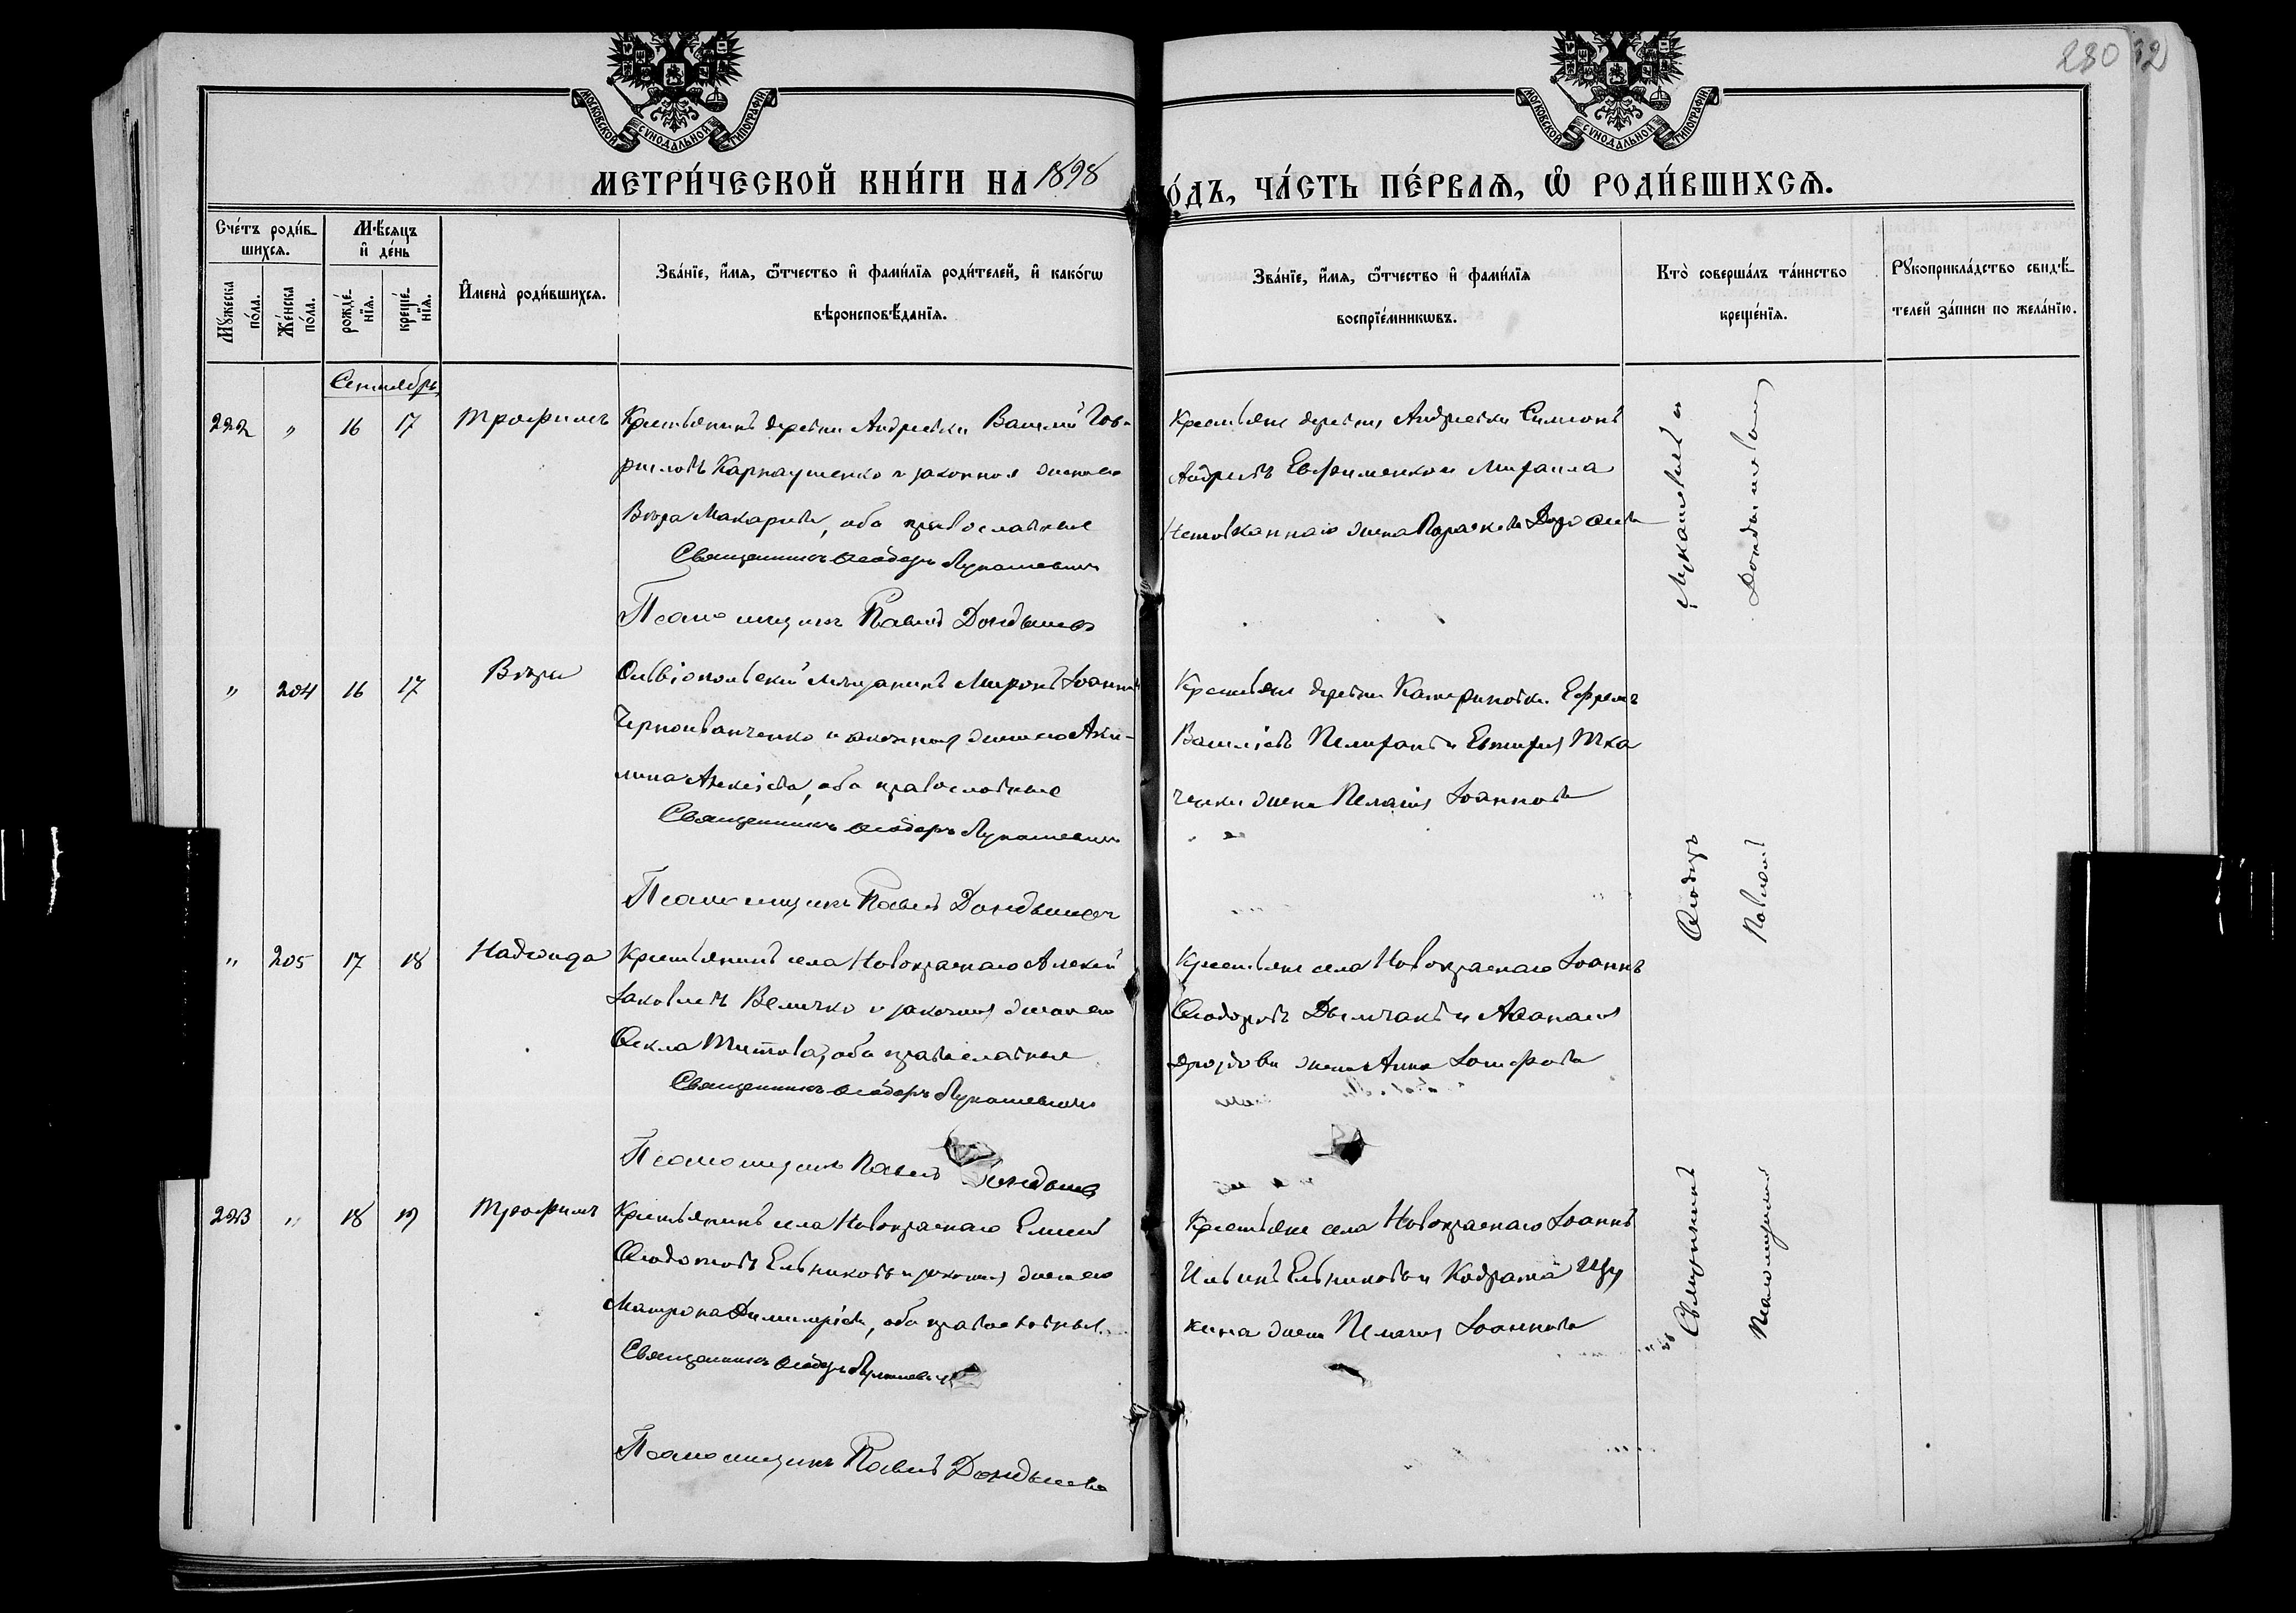 280
МОСКОВСКОЙ СѴНОДАЛЬНОЙ ТИПОГРАФІИ
МОСКОВСКОЙ СѴНОДАЛЬНОЙ ТИПОГРАФІИ
МЕТРИ́ЧЕСКОЙ КНИ́ГИ НА 1898
О́ДЪ, ЧА́СТЬ ПЕ́РВАѦ, Ѡ҆ РОДИ́ВШИХСѦ.
Сче́тъ роди́в-
шихсѧ.
Мѣ́сѧцъ
и҆ де́нь
Мꙋ́жеска по́ла.
Же́нска по́ла.
рожде́-нїѧ.
креще́-нїѧ.
И҆мена̀ роди́вшихсѧ.
Зва́нїе, и҆́мѧ, ѻ҆́тчество и҆ фами́лїѧ роди́телей, и҆ како́гѡ
вѣроисповѣ́данїѧ.
Зва́нїе, и҆́мѧ, ѻ҆́тчество и҆ фами́лїѧ
воспрїе́мникѡвъ.
Кто̀ соверша́лъ та́инство
креще́нїѧ.
Рꙋкоприкла́дство свидѣ́-
телей за́писи по жела́нїю.
Сентябрь
222 " 16 17 Трофимъ
Крестьянинъ деревни Андреевки Василій Гав-
риловъ Карнаушенко и законная жена его
Вѣра Макарова, оба православные
Священникъ Ѳеодоръ Лукашевичъ
Псаломщикъ Павелъ Дондышевъ
Крестьяне деревни Андреевки Симеонъ
Андреевъ Евфименко и Михаила
жена Параскева
" 204 16 17 Вѣра
Ольвіопольскій мѣщанинъ Миронъ Іоанновъ
Черноиванченко и законная жена его Аки-
лина Алексіева, оба православные
Священникъ Ѳеодоръ Лукашевичъ
Псаломщикъ Павелъ Дондышевъ
Крестьяне деревни Катериновки Ефремъ
Василіевъ и Евтихія Тка
ченки жена Пелагія Іоаннова
" 205 17 18 Надежда
Крестьянинъ села Новокраснаго Алексій
Іаковлевъ Величко и законная жена его
Ѳекла Титова, оба православные
Священникъ Ѳеодоръ Лукашевичъ
Псаломщикъ Павелъ Дондышевъ
Крестьяне села Новокраснаго Іоаннъ
Ѳеодоровъ Дымчакъ и Аѳанасія
Дроздова жена Анна Іосифова
223 " 18 19 Трофимъ
Крестьянинъ села Новокраснаго
Ѳеодотовъ Ельниковъ и законная жена его
Матрона Димитріева, оба православные
Священникъ Ѳеодоръ Лукашевичъ
Псаломщикъ Павелъ Дондышевъ
Крестьяне села Новокраснаго Іоаннъ
Ильинъ Ельниковъ и Кодрата Щу
кина жена Пелагія Іоаннова
Священникъ Ѳеодоръ Лукашевичъ и
Псаломщикъ Павелъ